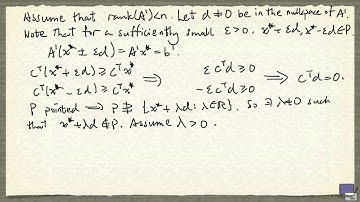 Assume that rank(A')<n. Let d≠0 be in the nullspace of A'.
Note that for a sufficiently small ε>0, x*+εd, x*-εd∈P.
A'(x* ± εd) = A'x* = b'.
cᵀ(x*+εd) ≥ cᵀx* ⟹ εcᵀd ≥ 0 ⟹ cᵀd = 0.
cᵀ(x*-εd) ≥ cᵀx* -εcᵀd ≥ 0
P pointed ⟹ P ⊉ {x*+λd : λ∈ℝ}. So ∃ λ≠0 such
that x*+λd ∉ P. Assume λ>0.